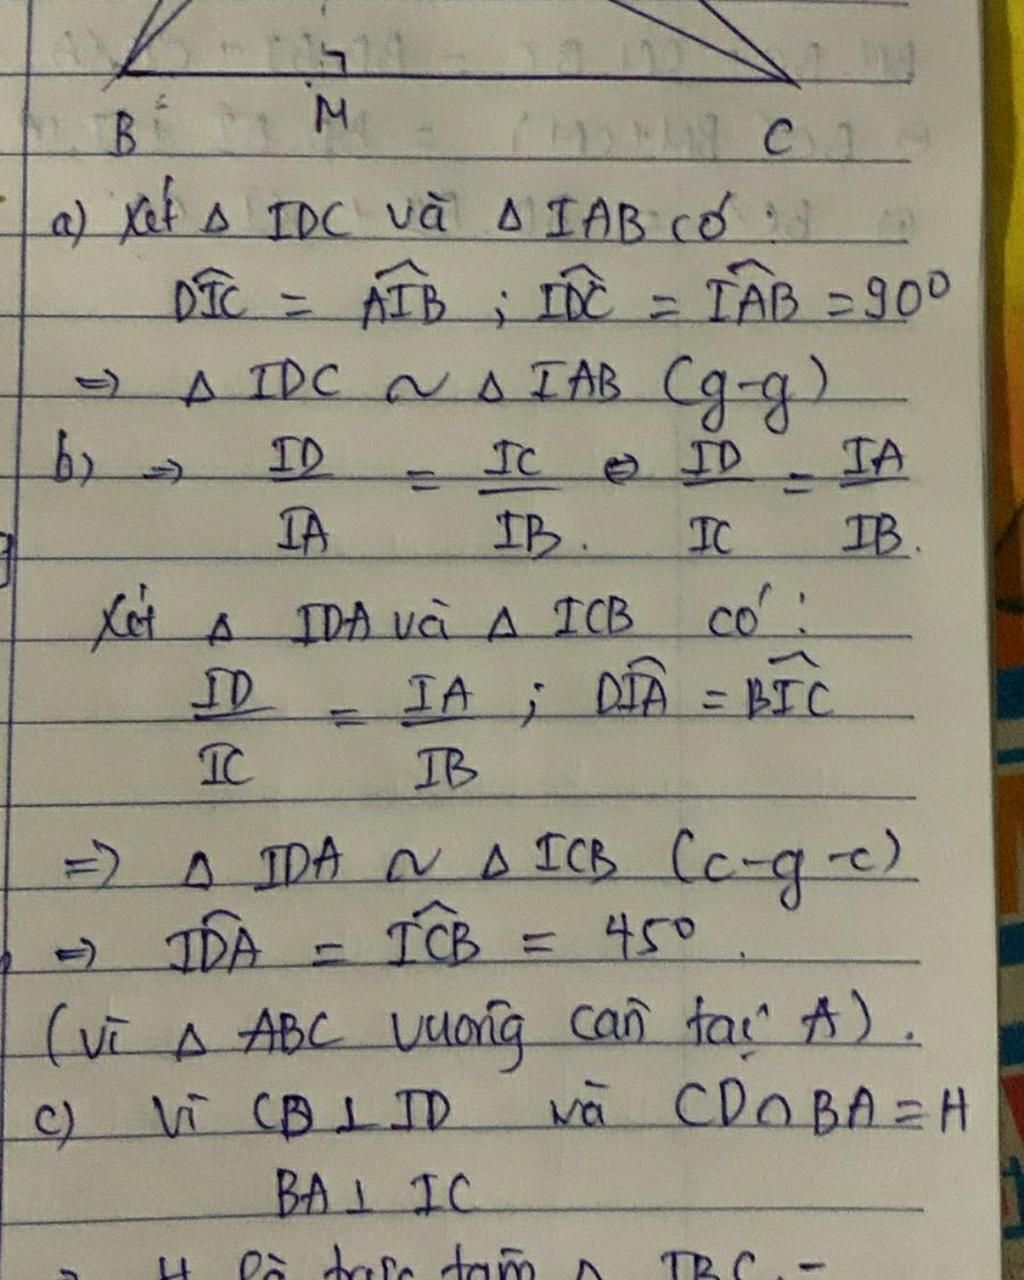 B M C
a) Xét Δ IDC và Δ IAB có :
DIC = AIB ; IDC = IAB = 90°
=> Δ IDC ~ Δ IAB (g-g)
b) => ID/IA = IC/IB . <=> ID/IC = IA/IB .
Xét Δ IDA và Δ ICB có :
ID/IC = IA/IB ; DIA = BIC
=> Δ IDA ~ Δ ICB (c-g-c)
=> IDA = ICB = 45° .
(vì Δ ABC vuông cân tại A) .
c) Vì CB ⊥ ID và CD ∩ BA = H
BA ⊥ IC
H là trực tâm Δ IBC .